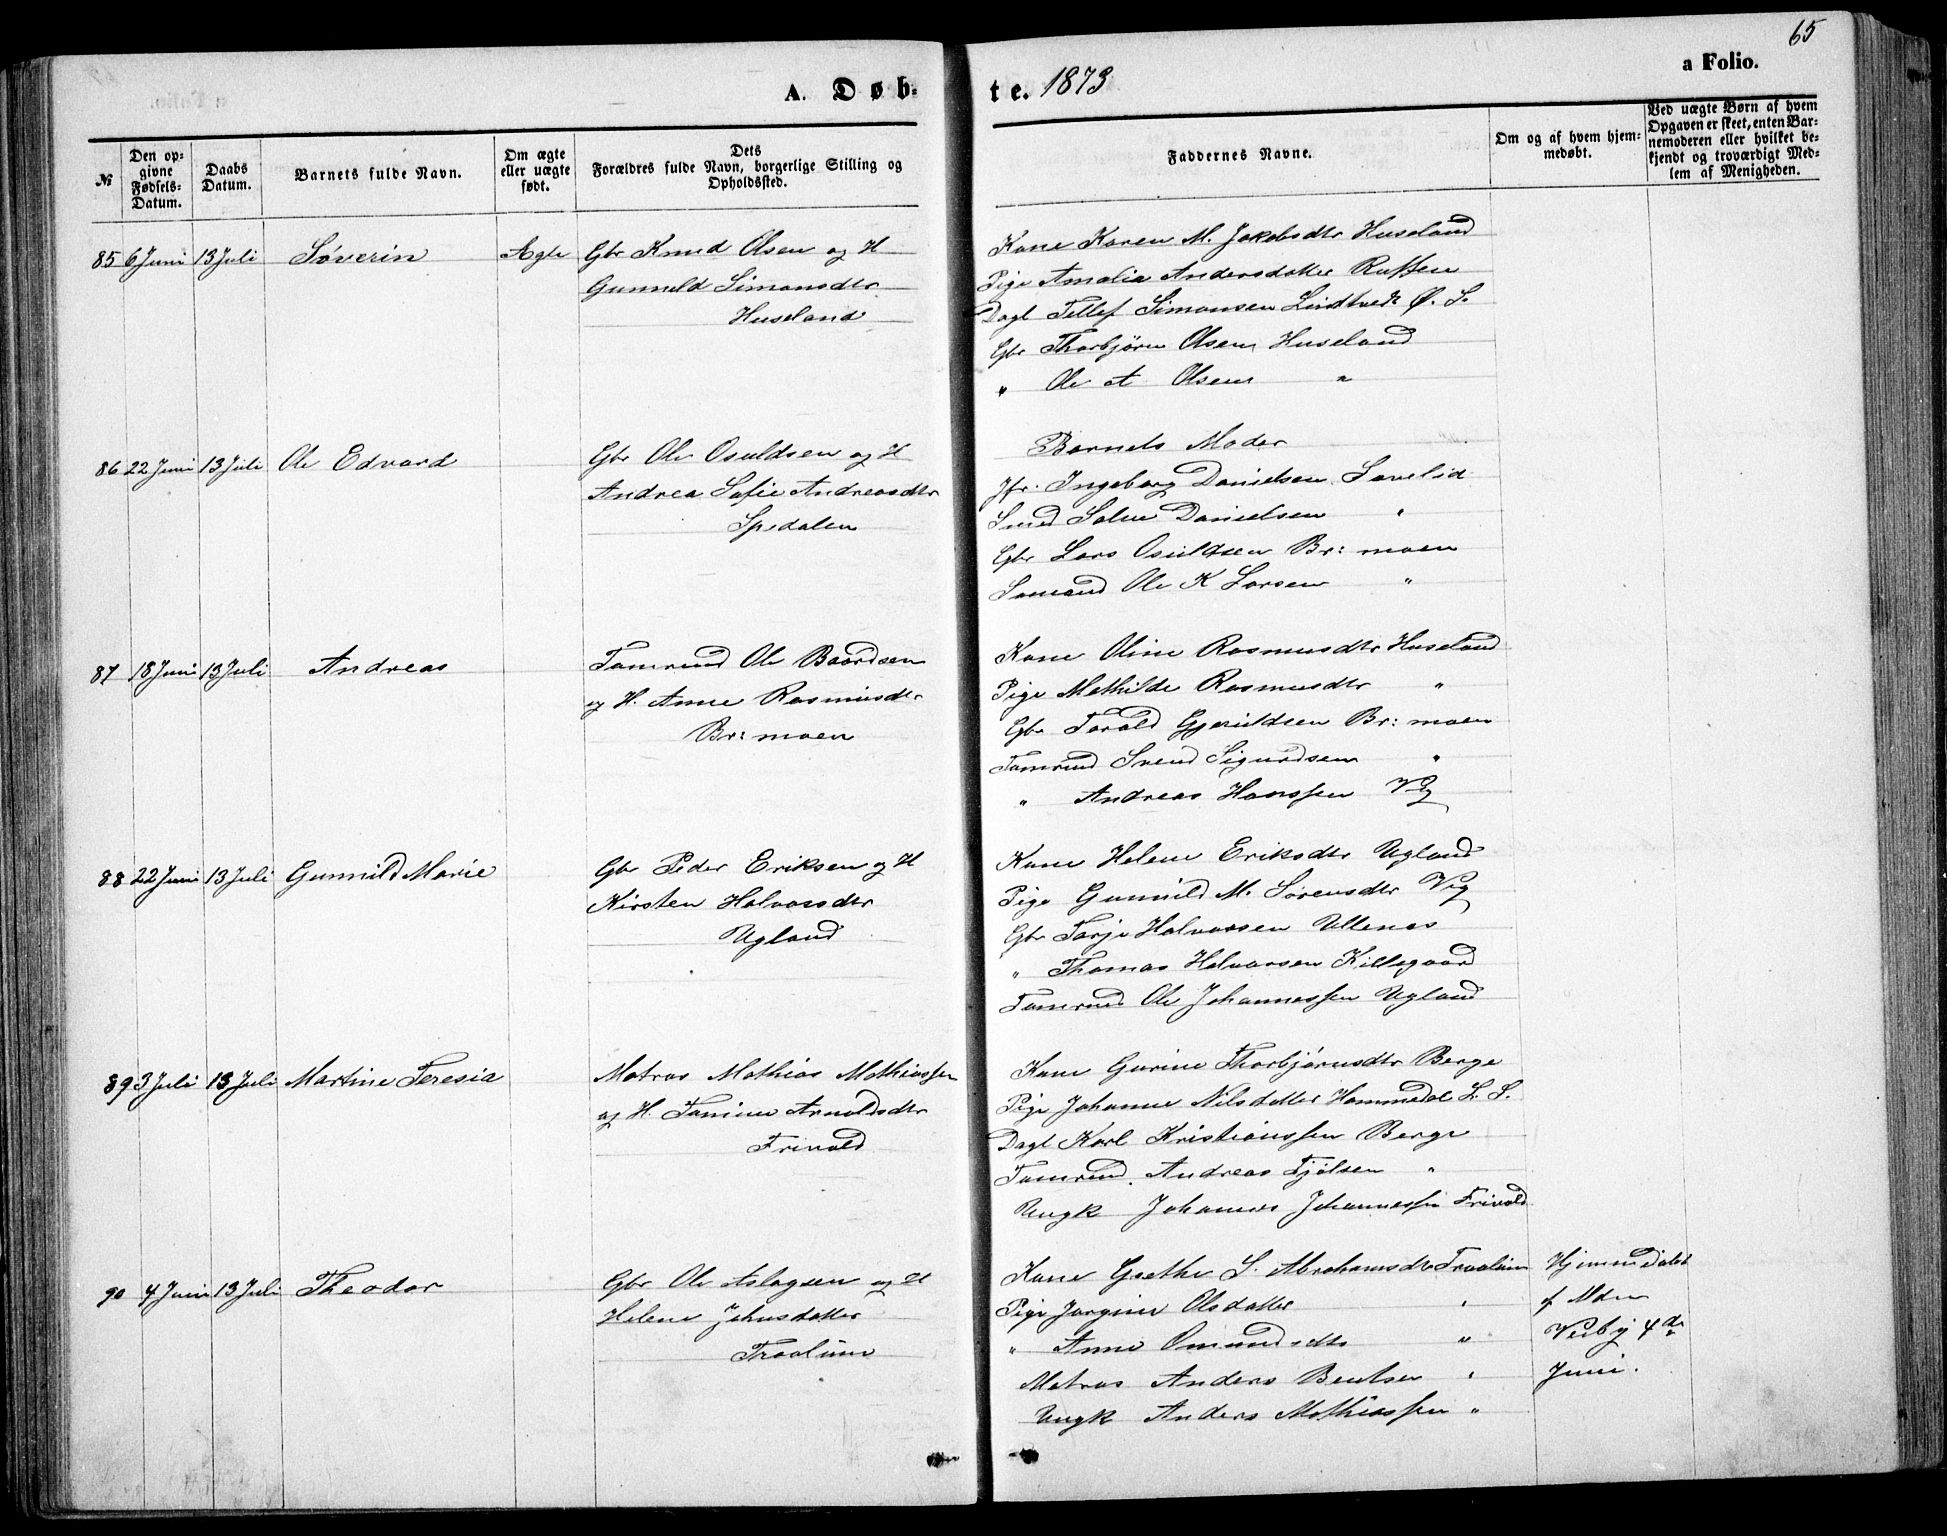 65
a Folio.
A. Døb-
te. 1873
№
Den op-
givne
Fødsels-
Datum.
Daabs
Datum.
Barnets fulde Navn.
Om ægte
eller uægte
født.
Dets
Forældres fulde Navn, borgerlige Stilling og
Opholdssted.
Faddernes Navne.
Om og af hvem hjem-
medøbt.
Ved uægte Børn af hvem
Opgaven er skeet, enten Bar-
nemoderen eller hvilket be-
kjendt og troværdigt Med-
lem af Menigheden.
85 6 Juni 13 Juli Søverin Ægte Gbr Knud Olsen og H
Gunnuld Simonsdtr
Huseland
Kone Karen M. Jakobsdtr Huseland
Pige Amalia Andersdatter
Dagl Tellef Simonsen Lindtvedt Ø. S.
Gbr Thorbjørn Olsen Huseland
" Ole A Olsen "
86 22 Juni 13 Juli Ole Edvard Gbr Ole Osuldsen og H
Andrea Sofie Andreasdtr
Spedalen
Barnets Moder
Jfr. Ingeborg Danielsen Savelid
Smed Salve Danielsen "
Gbr Lars Osuldsen Br: moen
Sømand Ole K Larsen "
87 18 Juni 13 Juli Andreas Tømrmd Ole Baardsen
og H. Anne Rasmusdtr
Br: moen
Kone Oline Rasmusdtr Huseland
Pige Mathilde Rasmusdtr "
Gbr Torald Gjeruldsen Br: moen
Tømrmd Svend Sigurdsen "
" Andreas Hanssen Vig
88 22 Juni 13 Juli Gunnild Marie Gbr Peder Eriksen og H
Kirsten Halvorsdtr
Ugland
Kone Helene Eriksdtr Ugland
Pige Gunnild M. Sørensdtr Vig
Gbr Tarje Halvorsen Ullenes
" Thomas Halvorsen Killegaard
Tømrmd Ole Johannessen Ugland
89 3 Juli 13 Juli Martine Teresia Matros Mathias Mathiassen
og H. Tomine Arnoldsdtr
Frivold
Kone Gurine Thorbjørnsdtr Berge
Pige Johanne Nilsdatter Hammedal L. S.
Dagl Karl Kristianssen Berge
Tømrmd. Andreas Fjølsen "
Ungk Johannes Johannessen Frivold
90 4 Juni 13 Juli Theodor Gbr Ole Aslagsen og H
Helene Jensdatter
Traalum
Kone Grethe S. Abrahamsdtr Traalum
Pige Jørgine Olsdatter "
" Anne Omundsdtr "
Matros Anders Bentsen "
Ungk Anders Mathiassen "
Hjemmedøbt
af
4de
Juni.